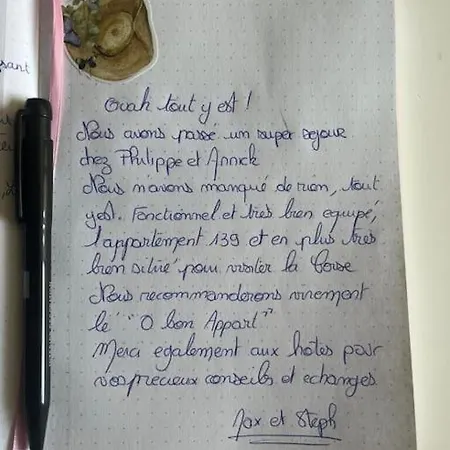 sant
Ouah tout y est !
Nous avons passé un super sejour
chez Philippe et Annick
Nous n'avons manqué de rien, tout
yest. Fonctionnel et très bien equipé,
l'appartement 139 et en plus très
bien situé pour visiter la Corse
Nous recommanderons vivement
le "O bon Appart"
Merci egalement aux hotes pour
vos precieux conseils et echanges
et Steph